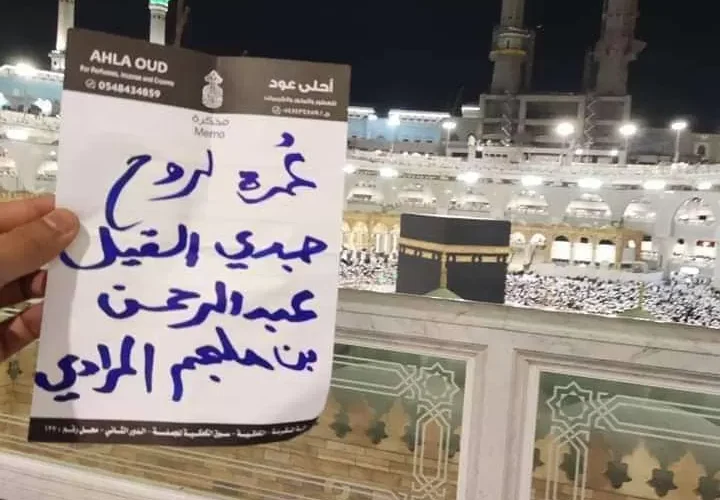 AHLA OUD
For Perfumes, Incense and Crafts
0548434659
أحلى عود
للعطور والبخور
مذكرة
Memo
عُمره لروح
جدي القيل
عبدالرحمن
بن ملجم المرادي
الدور الثاني - محل رقم